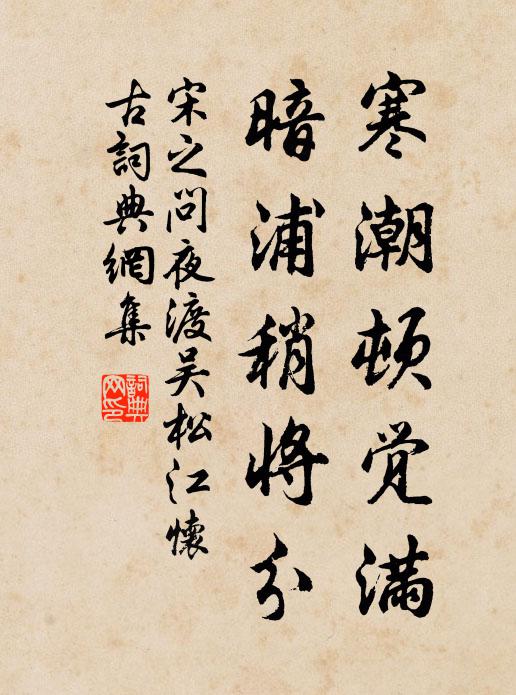 寒潮顿觉满
暗浦稍将分
宋之问夜渡吴松江怀
古詞典網集
詞典网印